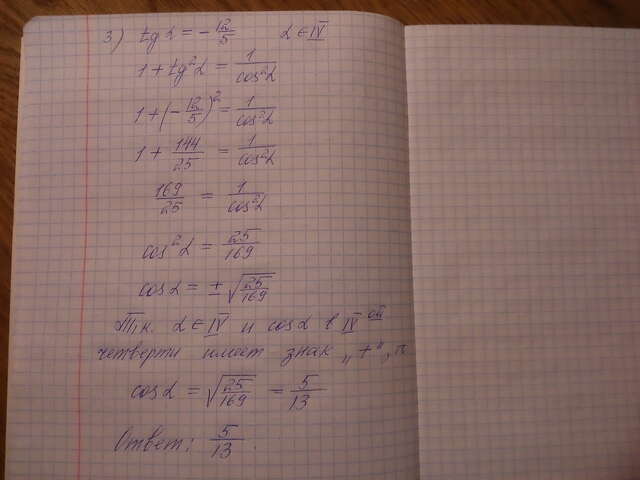 3) tg α = -12/5 α ∈ IV
1 + tg²α = 1/cos²α
1 + (-12/5)² = 1/cos²α
1 + 144/25 = 1/cos²α
169/25 = 1/cos²α
cos²α = 25/169
cos α = ± √(25/169)
Т.к. α ∈ IV и cos α в IV ой
четверти имеет знак „+“,
cos α = √(25/169) = 5/13
Ответ: 5/13.